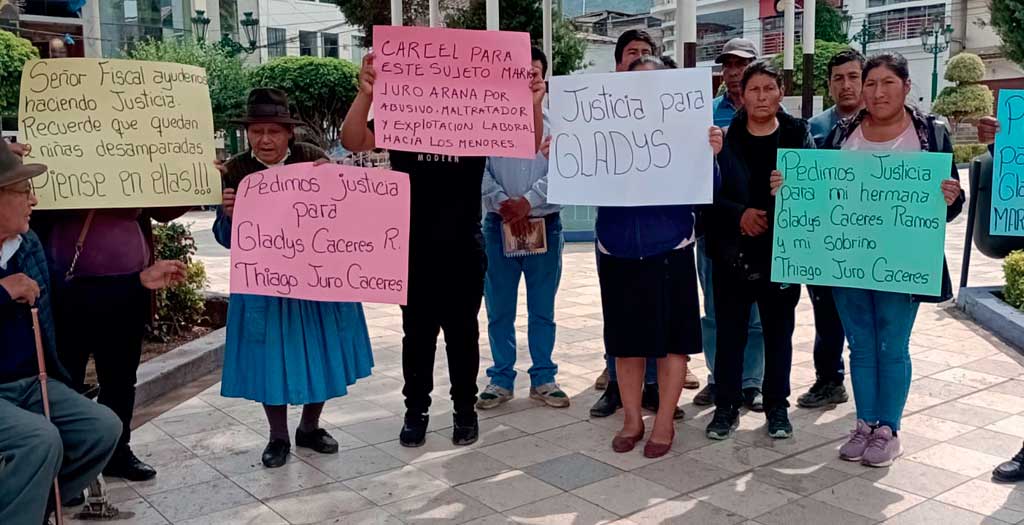 Señor Fiscal ayudenos
haciendo Justicia.
Recuerde que quedan
niñas desamparadas
Piense en ellas!!!
Pedimos justicia
para
Gladys Caceres R.
Thiago Juro Caceres
CARCEL PARA
ESTE SUJETO MARIO
JURO ARANA POR
ABUSIVO. MALTRATADOR
Y EXPLOTACION LABORAL
HACIA LOS MENORES.
MODERN
Justicia para
GLADYS
Pedimos Justicia
para mi hermana
Gladys Caceres Ramos
y mi sobrino
Thiago Juro Caceres